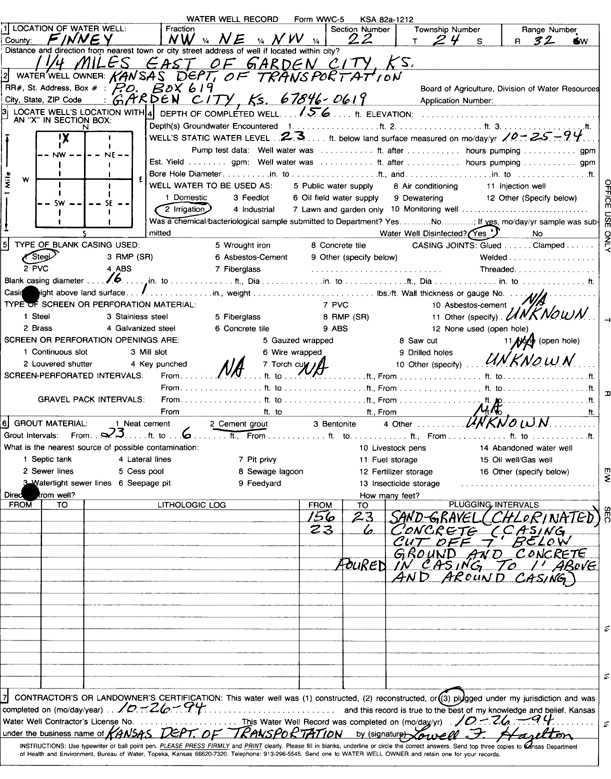 WATER WELL RECORD Form WWC-5 KSA 82a-1212
1 LOCATION OF WATER WELL: Fraction Section Number Township Number Range Number
County: FINNEY NW ¼ NE ¼ NW ¼ 22 T 24 S R 32 W
Distance and direction from nearest town or city street address of well if located within city?
1 1/4 MILES EAST OF GARDEN CITY, KS.
2 WATER WELL OWNER: KANSAS DEPT. OF TRANSPORTATION
RR#, St. Address, Box # : P.O. BOX 619 Board of Agriculture, Division of Water Resources
City, State, ZIP Code : GARDEN CITY, KS. 67846-0619 Application Number:
3 LOCATE WELL'S LOCATION WITH AN "X" IN SECTION BOX:
N
X
NW NE
W E
SW SE
S
1 Mile
4 DEPTH OF COMPLETED WELL 156 ft. ELEVATION:
Depth(s) Groundwater Encountered 1. ft. 2. ft. 3. ft.
WELL'S STATIC WATER LEVEL 23 ft. below land surface measured on mo/day/yr 10-25-94
Pump test data: Well water was ft. after hours pumping gpm
Est. Yield gpm: Well water was ft. after hours pumping gpm
Bore Hole Diameter in. to ft., and in. to ft.
WELL WATER TO BE USED AS: 5 Public water supply 8 Air conditioning 11 Injection well
1 Domestic 3 Feedlot 6 Oil field water supply 9 Dewatering 12 Other (Specify below)
2 Irrigation 4 Industrial 7 Lawn and garden only 10 Monitoring well
Was a chemical/bacteriological sample submitted to Department? Yes No ; If yes, mo/day/yr sample was submitted
Water Well Disinfected? Yes No
5 TYPE OF BLANK CASING USED: 5 Wrought iron 8 Concrete tile CASING JOINTS: Glued Clamped
1 Steel 3 RMP (SR) 6 Asbestos-Cement 9 Other (specify below) Welded
2 PVC 4 ABS 7 Fiberglass Threaded
Blank casing diameter 16 in. to ft., Dia in. to ft., Dia in. to ft.
height above land surface 1 in., weight lbs./ft. Wall thickness or gauge No. N/A
TYPE OF SCREEN OR PERFORATION MATERIAL: 7 PVC 10 Asbestos-cement
1 Steel 3 Stainless steel 5 Fiberglass 8 RMP (SR) 11 Other (specify) UNKNOWN
2 Brass 4 Galvanized steel 6 Concrete tile 9 ABS 12 None used (open hole)
SCREEN OR PERFORATION OPENINGS ARE: 5 Gauzed wrapped 8 Saw cut 11 NA (open hole)
1 Continuous slot 3 Mill slot 6 Wire wrapped 9 Drilled holes
2 Louvered shutter 4 Key punched 7 Torch cut 10 Other (specify) UNKNOWN
SCREEN-PERFORATED INTERVALS: From NA ft. to NA ft., From ft. to ft.
From ft. to ft., From ft. to ft.
GRAVEL PACK INTERVALS: From ft. to ft., From ft. to ft.
From ft. to ft., From NA ft. to ft.
6 GROUT MATERIAL: 1 Neat cement 2 Cement grout 3 Bentonite 4 Other UNKNOWN
Grout Intervals: From 23 ft. to 6 ft., From ft. to ft., From ft. to ft.
What is the nearest source of possible contamination: 10 Livestock pens 14 Abandoned water well
1 Septic tank 4 Lateral lines 7 Pit privy 11 Fuel storage 15 Oil well/Gas well
2 Sewer lines 5 Cess pool 8 Sewage lagoon 12 Fertilizer storage 16 Other (specify below)
3 Watertight sewer lines 6 Seepage pit 9 Feedyard 13 Insecticide storage
from well? How many feet?
FROM TO LITHOLOGIC LOG FROM TO PLUGGING INTERVALS
156 23 SAND-GRAVEL (CHLORINATED)
23 6 CONCRETE (CASING
CUT OFF 7' BELOW
GROUND AND CONCRETE
POURED IN CASING TO 1' ABOVE
AND AROUND CASING)
7 CONTRACTOR'S OR LANDOWNER'S CERTIFICATION: This water well was (1) constructed, (2) reconstructed, or (3) plugged under my jurisdiction and was
completed on (mo/day/year) 10-26-94 and this record is true to the best of my knowledge and belief. Kansas
Water Well Contractor's License No. This Water Well Record was completed on (mo/day/yr) 10-26-94
under the business name of KANSAS DEPT. OF TRANSPORTATION by (signature) Lowell F. Hazelton
INSTRUCTIONS: Use typewriter or ball point pen. PLEASE PRESS FIRMLY and PRINT clearly. Please fill in blanks, underline or circle the correct answers. Send top three copies to Kansas Department
of Health and Environment, Bureau of Water, Topeka, Kansas 66620-7320. Telephone: 913-296-5545. Send one to WATER WELL OWNER and retain one for your records.
OFFICE USE ONLY
T
R
E/W
SEC.
¼
¼
¼